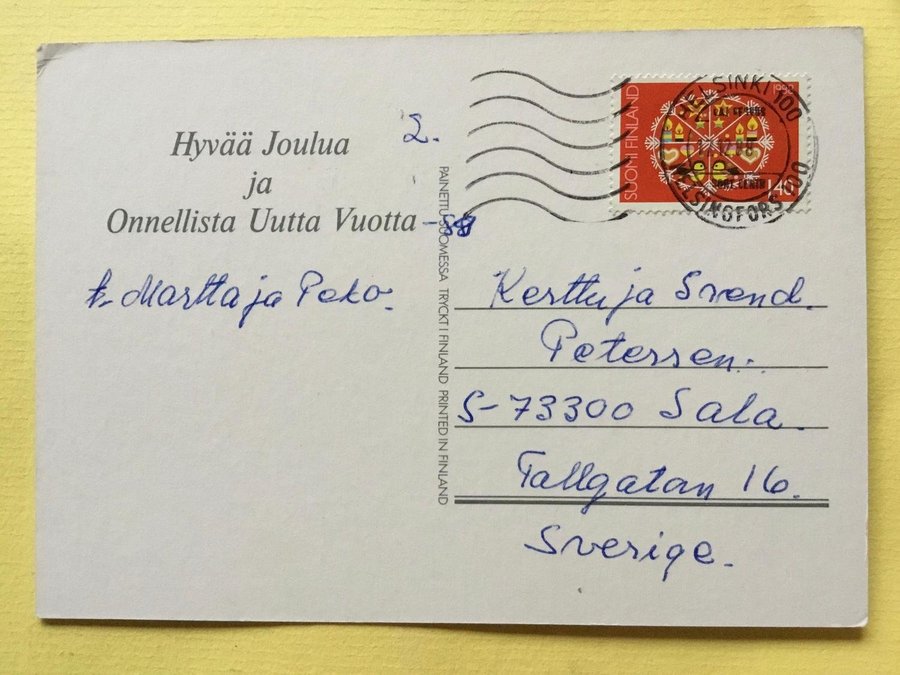 Hyvää Joulua
ja
Onnellista Uutta Vuotta -88
t. Martta ja Peko.
2.
PAINETTU SUOMESSA TRYCKT I FINLAND PRINTED IN FINLAND
SUOMI FINLAND
1,40
HELSINKI 100
HELSINGFORS 100
Kerttu ja Svend.
Petersen.
S-73300 Sala.
Tallgatan 16.
Sverige.